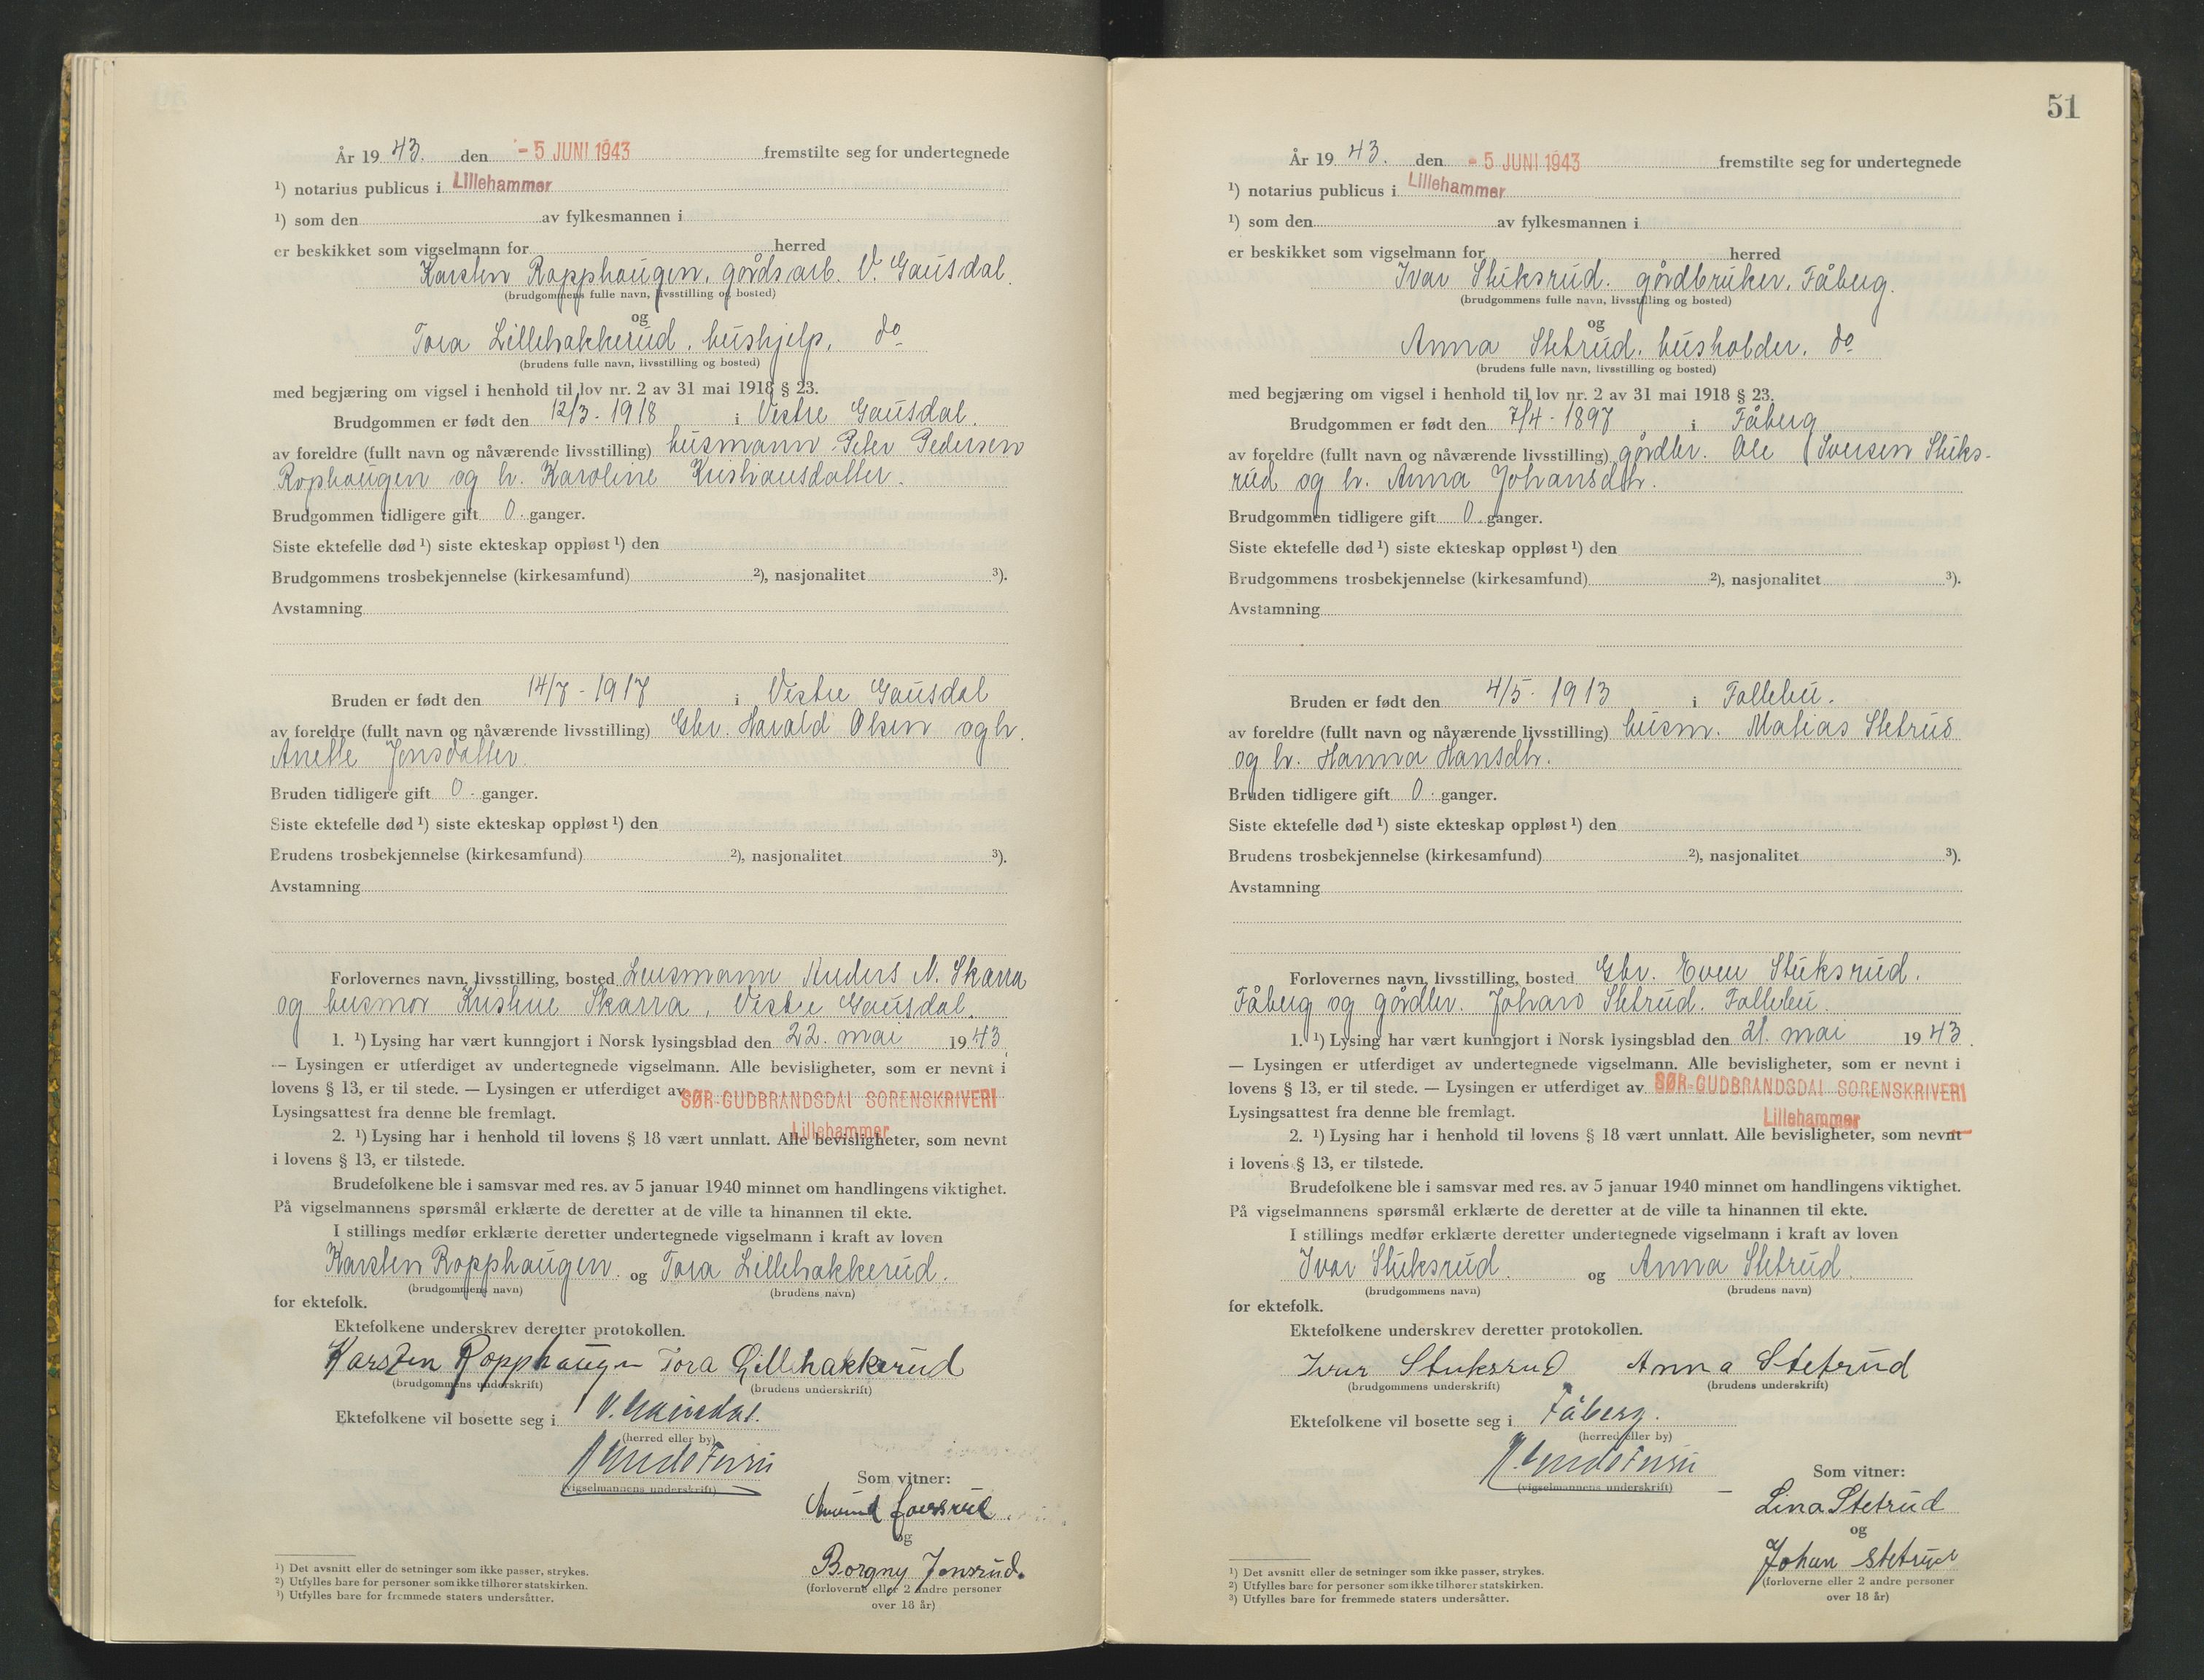 År 19 43. den - 5 JUNI 1943 fremstilte seg for undertegnede
¹) notarius publicus i Lillehammer
¹) som den av fylkesmannen i
er beskikket som vigselmann for herred
Karsten Ropphaugen, gårdsarb. V. Gausdal.
(brudgommens fulle navn, livsstilling og bosted)
og
Tora Lillehakkerud, hushjelp, do
(brudens fulle navn, livsstilling og bosted)
med begjæring om vigsel i henhold til lov nr. 2 av 31 mai 1918 § 23.
Brudgommen er født den 12/3 - 1918 i Vestre Gausdal.
av foreldre (fullt navn og nåværende livsstilling) husmann Peter Pedersen
Rophaugen og h. Karoline Kristiansdatter.
Brudgommen tidligere gift 0. ganger.
Siste ektefelle død ¹) siste ekteskap oppløst ¹) den
Brudgommens trosbekjennelse (kirkesamfund) ²), nasjonalitet ³).
Avstamning
Bruden er født den 14/7 - 1917 i Vestre Gausdal
av foreldre (fullt navn og nåværende livsstilling) Gbr. Harald Olsen og h.
Anette Jonsdatter
Bruden tidligere gift 0. ganger.
Siste ektefelle død ¹) siste ekteskap oppløst ¹) den
Brudens trosbekjennelse (kirkesamfund) ²), nasjonalitet ³).
Avstamning
Forlovernes navn, livsstilling, bosted Lensmann Anders N. Skarra
og husmor Kristine Skarra, Vestre Gausdal.
1. ¹) Lysing har vært kunngjort i Norsk lysingsblad den 22. mai 19 43
— Lysingen er utferdiget av undertegnede vigselmann. Alle bevisligheter, som er nevnt i
lovens § 13, er til stede. — Lysingen er utferdiget av SØR-GUDBRANDSDAL SORENSKRIVERI
Lysingsattest fra denne ble fremlagt.
Lillehammer
2. ¹) Lysing har i henhold til lovens § 18 vært unnlatt. Alle bevisligheter, som nevnt
i lovens § 13, er tilstede.
Brudefolkene ble i samsvar med res. av 5 januar 1940 minnet om handlingens viktighet.
På vigselmannens spørsmål erklærte de deretter at de ville ta hinannen til ekte.
I stillings medfør erklærte deretter undertegnede vigselmann i kraft av loven
Karsten Ropphaugen. og Tora Lillehakkerud.
(brudgommens navn) (brudens navn)
for ektefolk.
Ektefolkene underskrev deretter protokollen.
Karsten Ropphaugen Tora Lillehakkerud
(brudgommens underskrift) (brudens underskrift)
Ektefolkene vil bosette seg i V. Gausdal.
(herred eller by)
(vigselmannens underskrift)
Som vitner:
og
Borgny Jonsrud.
(forloverne eller 2 andre personer
over 18 år)
¹) Det avsnitt eller de setninger som ikke passer, strykes.
²) Utfylles bare for personer som ikke tilhører statskirken.
³) Utfylles bare for fremmede staters undersåtter.
51
År 19 43. den - 5 JUNI 1943 fremstilte seg for undertegnede
¹) notarius publicus i Lillehammer
¹) som den av fylkesmannen i
er beskikket som vigselmann for herred
Ivar Stuksrud. gårdbruker, Fåberg.
(brudgommens fulle navn, livsstilling og bosted)
og
Anna Stetrud, husholder, do
(brudens fulle navn, livsstilling og bosted)
med begjæring om vigsel i henhold til lov nr. 2 av 31 mai 1918 § 23.
Brudgommen er født den 7/4 - 1897 i Fåberg
av foreldre (fullt navn og nåværende livsstilling) gårdbr. Ole Iversen Stuks-
rud og h. Anna Johansdtr.
Brudgommen tidligere gift 0. ganger.
Siste ektefelle død ¹) siste ekteskap oppløst ¹) den
Brudgommens trosbekjennelse (kirkesamfund) ²), nasjonalitet ³).
Avstamning
Bruden er født den 4/5 - 1913 i Follebu.
av foreldre (fullt navn og nåværende livsstilling) husm. Matias Stetrud
og h. Hanna Hansdtr.
Bruden tidligere gift 0. ganger.
Siste ektefelle død ¹) siste ekteskap oppløst ¹) den
Brudens trosbekjennelse (kirkesamfund) ²), nasjonalitet ³).
Avstamning
Forlovernes navn, livsstilling, bosted Gbr. Even Stuksrud,
Fåberg og gårdbr. Johan Stetrud. Follebu.
1. ¹) Lysing har vært kunngjort i Norsk lysingsblad den 21. mai 19 43.
— Lysingen er utferdiget av undertegnede vigselmann. Alle bevisligheter, som er nevnt i
lovens § 13, er til stede. — Lysingen er utferdiget av SØR-GUDBRANDSDAL SORENSKRIVERI
Lysingsattest fra denne ble fremlagt.
Lillehammer
2. ¹) Lysing har i henhold til lovens § 18 vært unnlatt. Alle bevisligheter, som nevnt
i lovens § 13, er tilstede.
Brudefolkene ble i samsvar med res. av 5 januar 1940 minnet om handlingens viktighet.
På vigselmannens spørsmål erklærte de deretter at de ville ta hinannen til ekte.
I stillings medfør erklærte deretter undertegnede vigselmann i kraft av loven
Ivar Stuksrud. og Anna Stetrud.
(brudgommens navn) (brudens navn)
for ektefolk.
Ektefolkene underskrev deretter protokollen.
Ivar Stuksrud Anna Stetrud
(brudgommens underskrift) (brudens underskrift)
Ektefolkene vil bosette seg i Fåberg.
(herred eller by)
(vigselmannens underskrift)
Som vitner:
Lina Stetrud
og
Johan Stetrud
(forloverne eller 2 andre personer
over 18 år)
¹) Det avsnitt eller de setninger som ikke passer, strykes.
²) Utfylles bare for personer som ikke tilhører statskirken.
³) Utfylles bare for fremmede staters undersåtter.